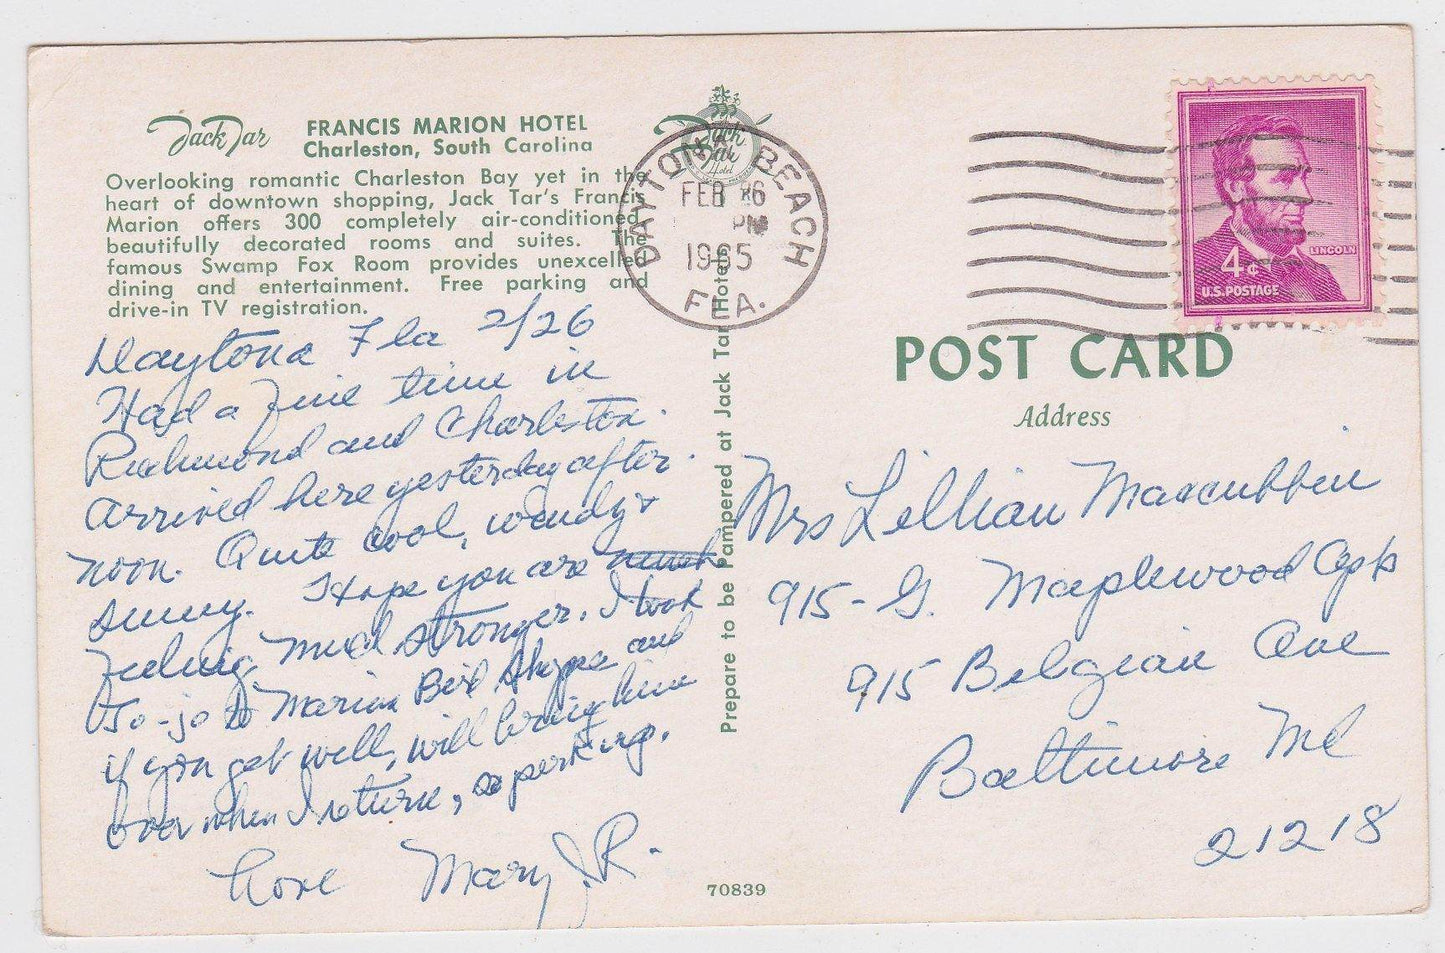 Jack Tar
FRANCIS MARION HOTEL
Charleston, South Carolina
Overlooking romantic Charleston Bay yet in the
heart of downtown shopping, Jack Tar's Francis
Marion offers 300 completely air-conditioned,
beautifully decorated rooms and suites. The
famous Swamp Fox Room provides unexcelled
dining and entertainment. Free parking and
drive-in TV registration.
Daytona Fla 2/26
Had a fine time in
Richmond and Charleston.
Arrived here yesterday after-
noon. Quite cool, windy &
sunny. Hope you are much
feeling much stronger. I took
Jo-jo to Marian Bird Shoppe and
if you get well, will bring him
over when I return, so perk up.
Love Mary J. R.
Prepare to be Pampered at Jack Tar Hotels
Jack
Tar
Hotel
DAYTONA BEACH
FEB 26
PM
1965
FLA.
LINCOLN
4¢
U.S. POSTAGE
POST CARD
Address
Mrs Lillian Maccubbin
915-G. Maplewood Apts
915 Belgian Ave
Baltimore Md
21218
70839